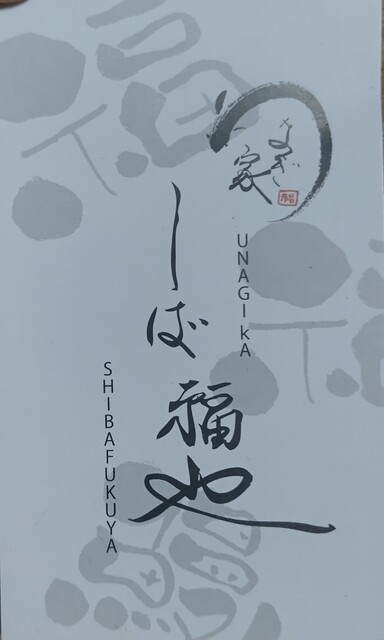 うなぎ
家
UNAGI KA
しば福や
SHIBAFUKUYA